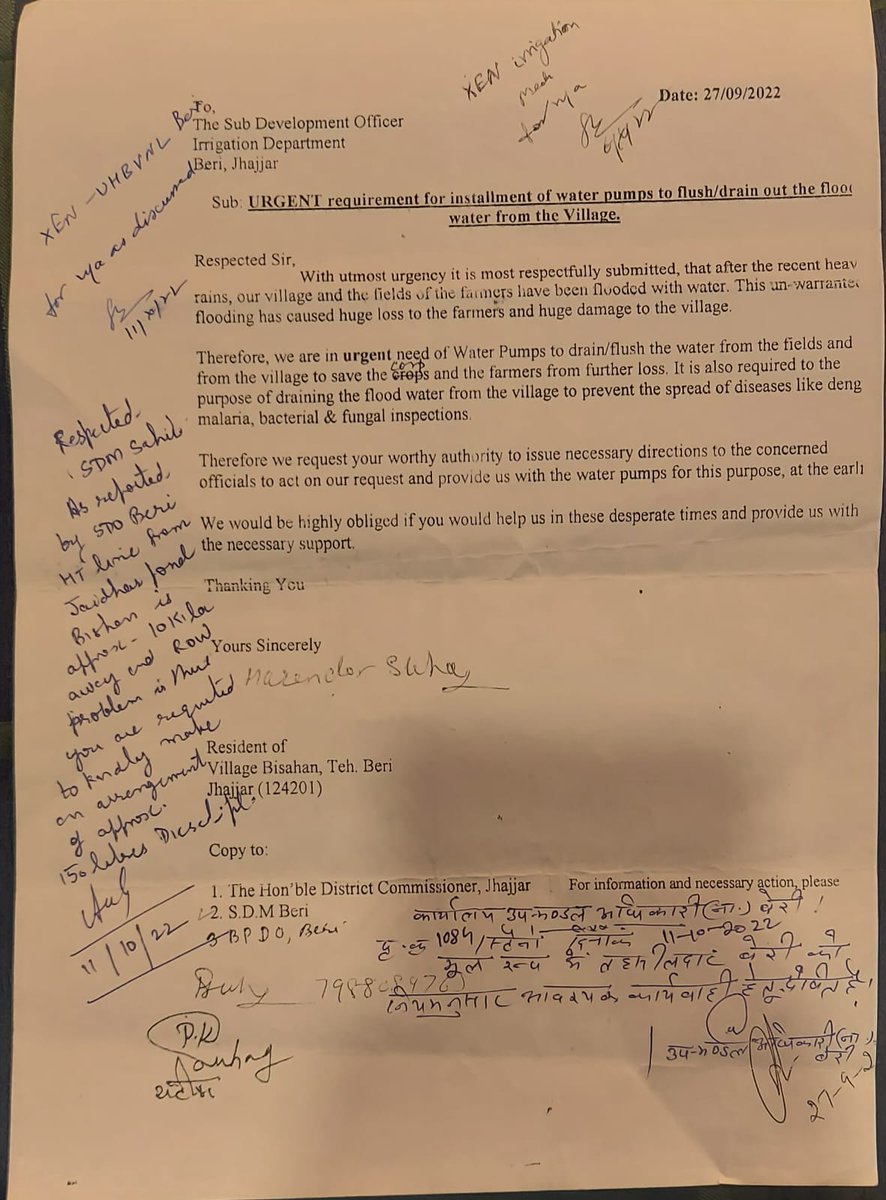 XEN irrigation
Mech
for n/a
Date: 27/09/2022
To,
The Sub Development Officer
Irrigation Department
Beri, Jhajjar
XEN - UHBVNL Beri
for n/a as discussed
11/x/22
Sub: URGENT requirement for installment of water pumps to flush/drain out the flood
water from the Village.
Respected Sir,
With utmost urgency it is most respectfully submitted, that after the recent heav
rains, our village and the fields of the farmers have been flooded with water. This un-warranted
flooding has caused huge loss to the farmers and huge damage to the village.
Therefore, we are in urgent need of Water Pumps to drain/flush the water from the fields and
from the village to save the crops and the farmers from further loss. It is also required to the
purpose of draining the flood water from the village to prevent the spread of diseases like deng
malaria, bacterial & fungal inspections.
Therefore we request your worthy authority to issue necessary directions to the concerned
officials to act on our request and provide us with the water pumps for this purpose, at the earli
We would be highly obliged if you would help us in these desperate times and provide us with
the necessary support.
Thanking You
Yours Sincerely
Resident of
Village Bisahan, Teh. Beri
Jhajjar (124201)
Copy to:
1. The Hon'ble District Commissioner, Jhajjar For information and necessary action, please
2. S.D.M Beri
3 BPDO, Beri
Respected
SDM Sahib
As reported
by SDO Beri
HT line from
pond
is
approx- 10 Kila
away and ROW
problem is there
you are requested
to kindly make
an arrangement
of approx.
150 litres Diesel pl.
11/10/22
कार्यालय उप-मण्डल अधिकारी (ना.) बेरी
1084 दिनांक 11-10-2022
मूल रूप में तहसीलदार बेरी को
नियमानुसार आवश्यक कार्यवाही हेतू प्रेषित है।
उप-मण्डल अधिकारी (ना.)
बेरी
D.K